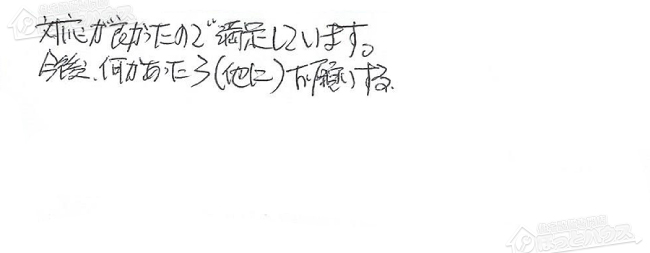 対応が良かったので満足しています。
今後、何かあったら(他に)お願いする。